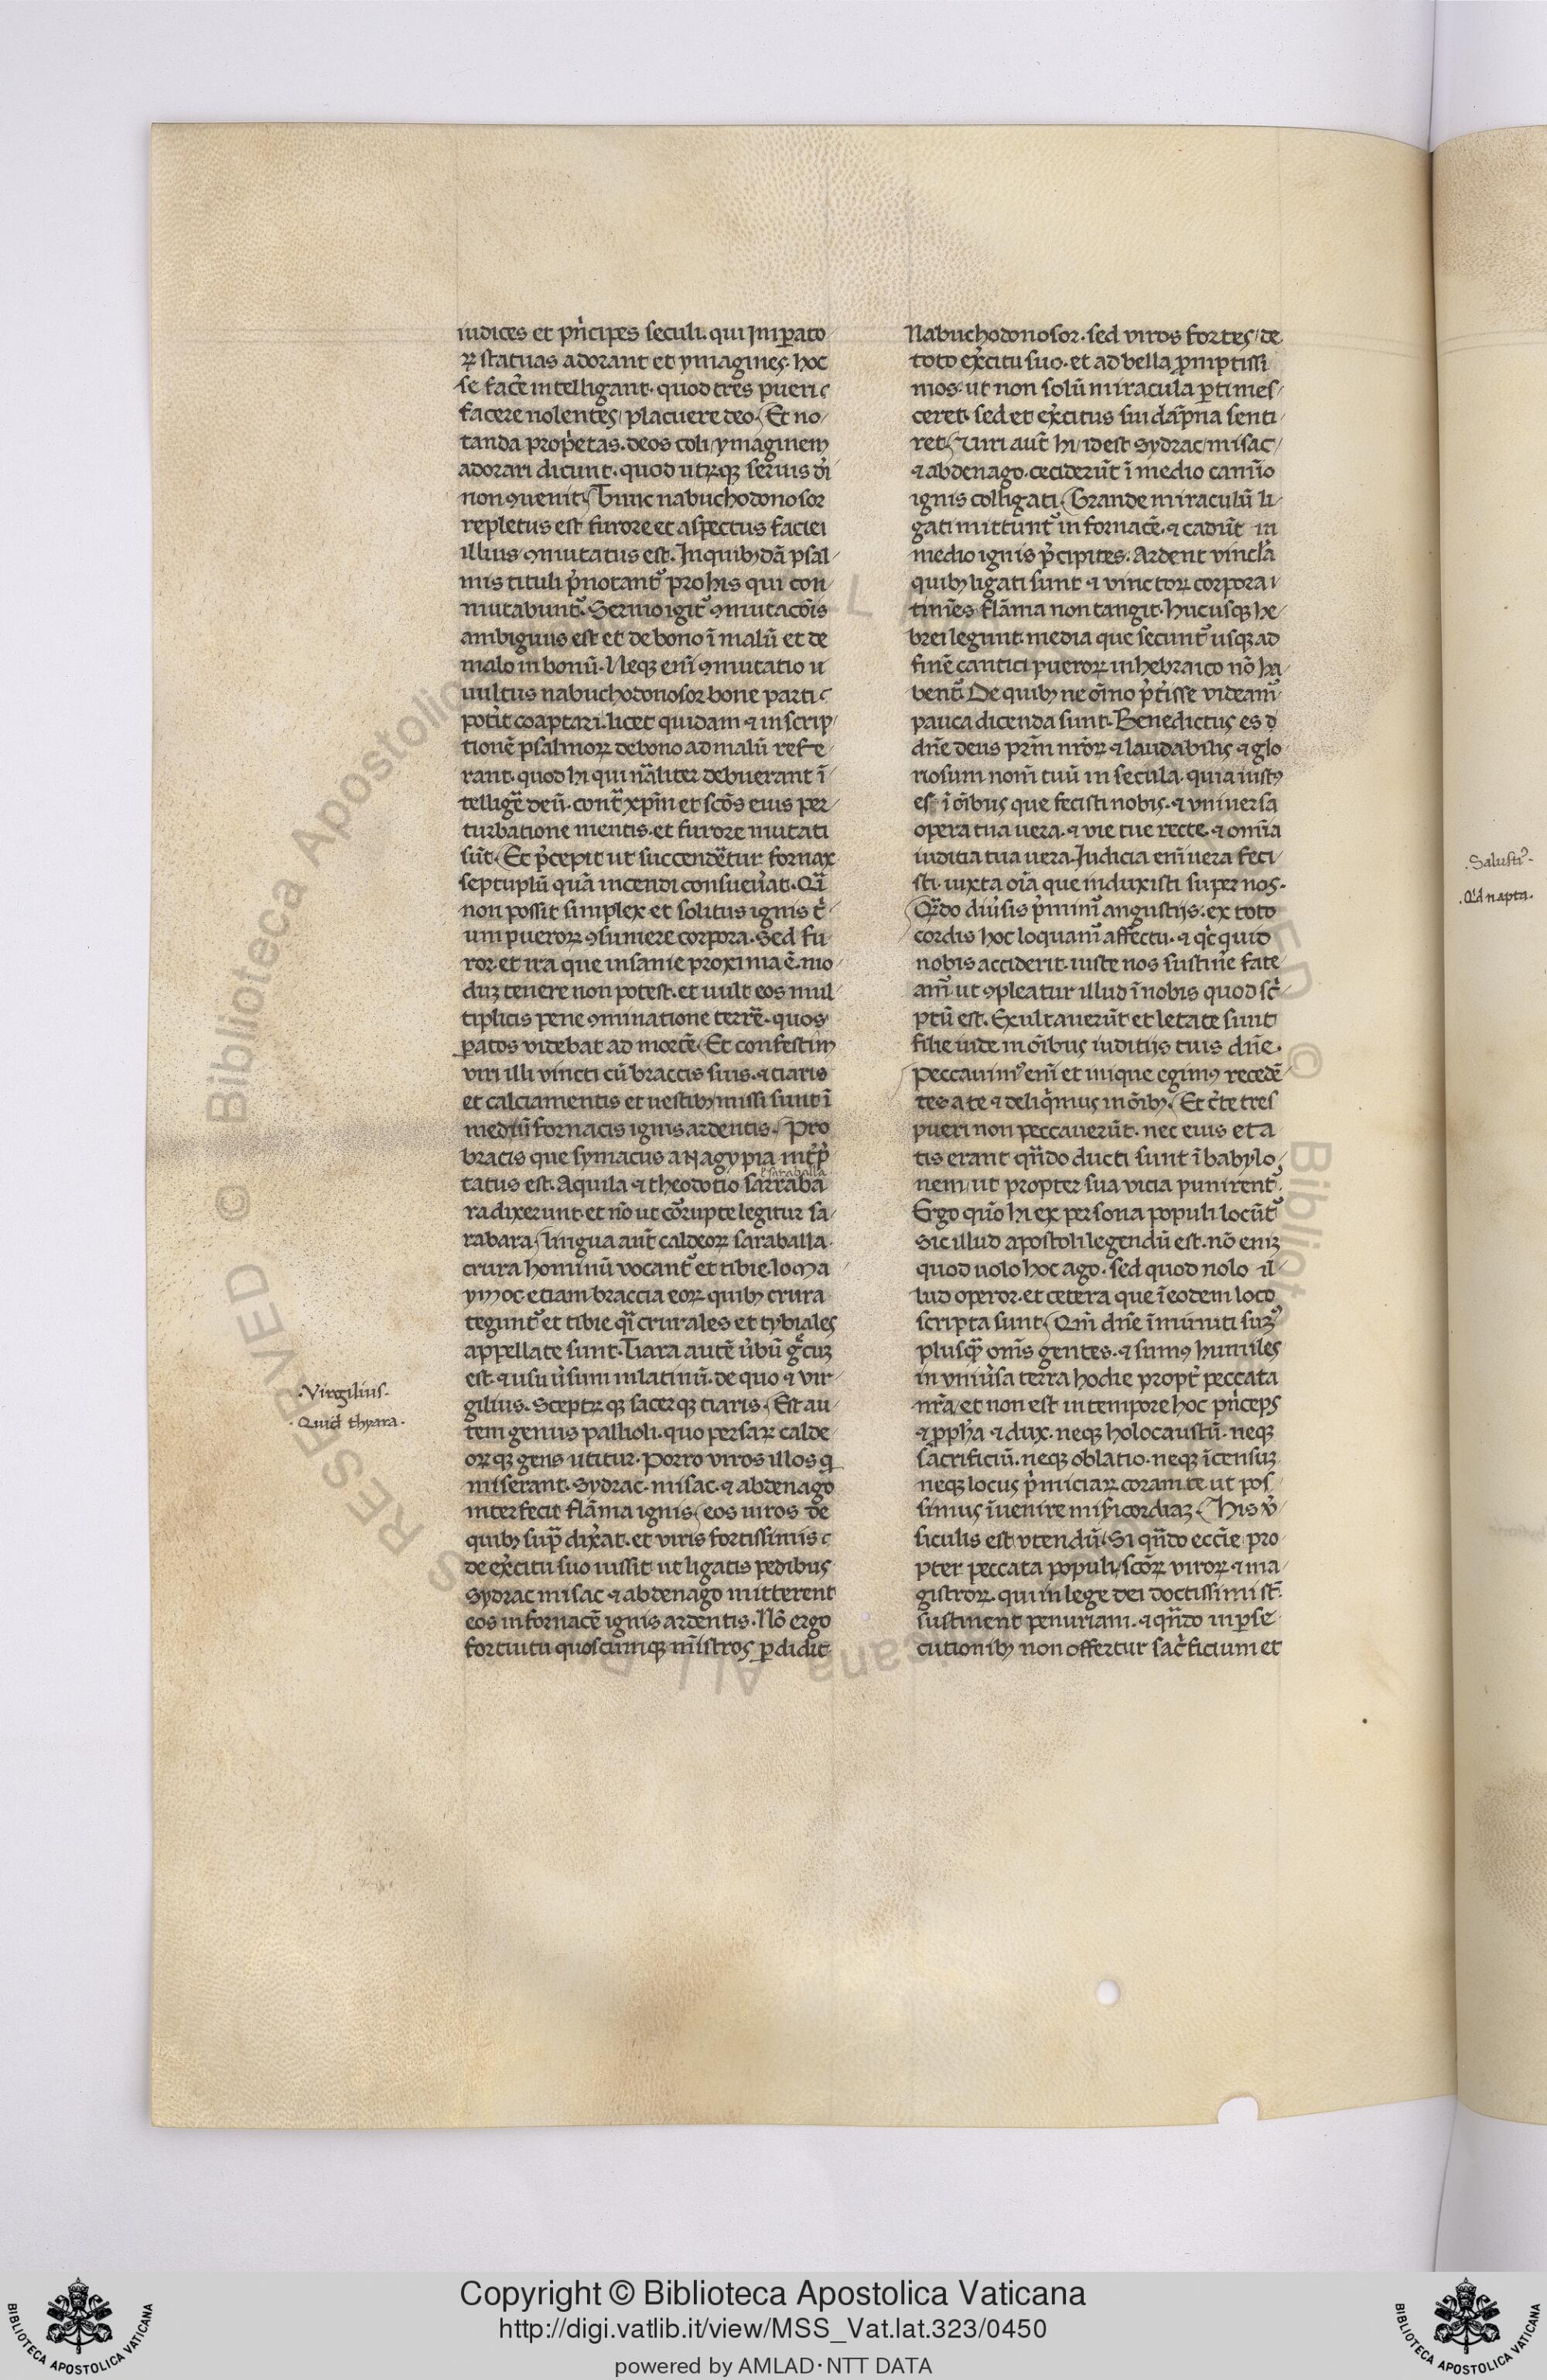 iudices et prı̉cipes seculi. qui Imꝑato
ꝝ statuas adorant et ymagines. hoc
se facẽ intelligant. quod tres pueri
facere nolentes/ placuere deo. Et no/
tanda propı̉etas. deos coli/ ymaginem
adorari dicunt. quod utrũqꝫ seruis dı̉
non ꝯuenit. Hunc nabuchodonosor
repletus est furore et aspectus faciei
illius ꝯmutatus est. In quibꝰdã psal/
mis tituli p̉notant᷑ pro his qui con
mutabunt᷑. Sermo igit᷑ ꝯmutacõis
ambiguus est et de bono ĩ malũ et de
malo in bonũ. Neqꝫ enĩ ꝯmutatio u
uultus nabuchodonosor bone parti
potı̉t coaptari. licet quidam ⁊ inscrip/
tionẽ psalmoꝝ de bono ad malũ refe
rant. quod hi qui nãliter debuerant ĩ
tellige᷑ deũ. contᷓ xp̃m et scõs eius per/
turbatione mentis. et furore mutati
sũt. Et p̉cepit ut succendẽtur fornax
septuplũ quã incendi consueu̾at. Qᷓi
non possit simplex et solitus ignis t̉
um pueroꝝ ꝯsumere corpora. Sed fu
ror. et ira que insanie proxima ẽ. mo
duꝫ tenere non potest. et uult eos mul/
tiplicis pene ꝯminatione terre᷑. quos
ꝑatos videbat ad mortẽ. Et confestim
viri illi vincti cũ braccis suis. ⁊ tiaris
et calciamentis et uestibꝰ/ missi sunt ĩ
mediũ fornacis ignis ardentis. Pro
bracis que symacus anagypia int̉p̉
saraballa
tatus est. Aquila ⁊ theodotio sarraba
ra dixerunt. et nõ ut cõrupte legitur sa/
rabara. lingua aut̃ caldeoꝝ saraballa
crura hominũ vocant᷑ et tibie.
etiam braccia eoꝝ quibꝰ crura
tegunt᷑ et tibie qᷓi crurales et tybiales
appellate sunt. Tiara autẽ ủbũ gᷓcuꝫ
est. ⁊ usu ủsum in latinũ. de quo ⁊ vir
gilius. Sceptrũ qꝫ sacer qꝫ tiaris. Est au/
tem genus pallioli. quo persaꝝ calde
oꝝqꝫ gens utitur. Porro viros illos q̣
miserant. Sydrac. misac. ⁊ abdenago
interfecit flãma ignis. eos uiros de
quibꝰ supᷓ dix̉at. et viris fortissimis
de ex̉citu suo iussit ut ligatis pedibus
Sydrac misac ⁊ abdenago mitterent
eos in fornacẽ ignis ardentis. Nõ ergo
fortuitu quoscumqꝫ mĩstros ꝑdidit
.Virgilius.
.Quid thyara.
Nabuchodonosor. sed viros fortes/ de
toto ex̉citu suo. et ad bella ꝓmptissi
mos. ut non solũ miracula ꝑtimes/
ceret. sed et ex̉citus sui dãpna senti/
ret. Viri aut̃ hi/ idest sydrac/ misac/
⁊ abdenago. ceciderũt ĩ medio camĩo
ignis colligati. Grande miraculũ li/
gati mittunt᷑ in fornacẽ. ⁊ cadũt in
medio ignis p̉cipites. Ardent vincła
quibꝰ ligati sunt ⁊ vinctoꝝ corpora
timẽs flãma non tangit. Hucusqꝫ he/
brei legunt. media que secunt᷑ usqꝫ ad
finẽ cantici pueroꝝ in hebraico nõ ha/
bent᷑. De quibꝰ ne oĩno p̉t̉isse videam᷑
pauca dicenda sunt. Benedictus es d
dñe deus pr̃m nr̃oꝝ ⁊ laudabilis ⁊ glo
riosum nom̃ tuũ in secula. quia iustꝰ
es ĩ oĩbus que fecisti nobis. ⁊ vniuersa
opera tua uera. ⁊ vie tue recte. ⁊ omĩa
iuditia tua uera. Iudicia enĩ uera feci
sti. iuxta oĩa que induxisti super nos.
Qᷓdo diu̾sis p̉mimꝰ angustijs. ex toto
cordis hoc loquamꝰ affectu. ⁊ qͥcquid
nobis acciderit. iuste nos sustine᷑ fate/
amꝰ ut ꝯpleatur illud ĩ nobis quod sc̉
ptũ est. Exultauerũt et letate sunt
filie iude in oĩbus iuditijs tuis dñe.
Peccauimꝰ enĩ et inique egimꝰ recedẽ/
tes a te ⁊ deliqͥmus in oĩbꝰ. Et c̉te tres
pueri non peccauerũt. nec eius eta
tis erant qñdo ducti sunt ĩ babylo/
nem/ ut propter sua vicia punirent᷑.
Ergo quõ hi ex persona populi locũt᷑
Sic illud apostoli legendũ est. nõ eniꝫ
quod uolo hoc ago. sed quod nolo il/
lud operor. et cetera que ĩ eodem loco
scripta sunt. Qm̃ dñe ĩminuti sumꝰ
plusqᷓ om̃s gentes. ⁊ sumꝰ humiles
in vniu̾sa terra hodie propt̉ peccata
nr̃a/ et non est in tempore hoc prı̉ceps
⁊ ꝓpha ⁊ dux. neqꝫ holocaustũ. neqꝫ
sacrificiũ. neqꝫ oblatio. neqꝫ ĩcensuꝫ
neqꝫ locus p̉miciaꝝ coram te. ut pos
simus ĩuenire misericordiaꝫ. His v̉
siculis est vtendũ. Si qñdo ecc̃ie pro
pter peccata populi/ scõꝝ viroꝝ ⁊ ma/
gistroꝝ. qui in lege dei doctissimi st̃.
sustinent penuriam. ⁊ qñdo in ꝑse
cutionibꝰ non offertur sac̉ficium et
.Salustiꝰ.
.Qͥd napta.
Copyright © Biblioteca Apostolica Vaticana
http://digi.vatlib.it/view/MSS_Vat.lat.323/0450
powered by AMLAD·NTT DATA
BIBLIOTECA APOSTOLICA VATICANA
BIBLIOTECA APOSTOLICA VATICANA